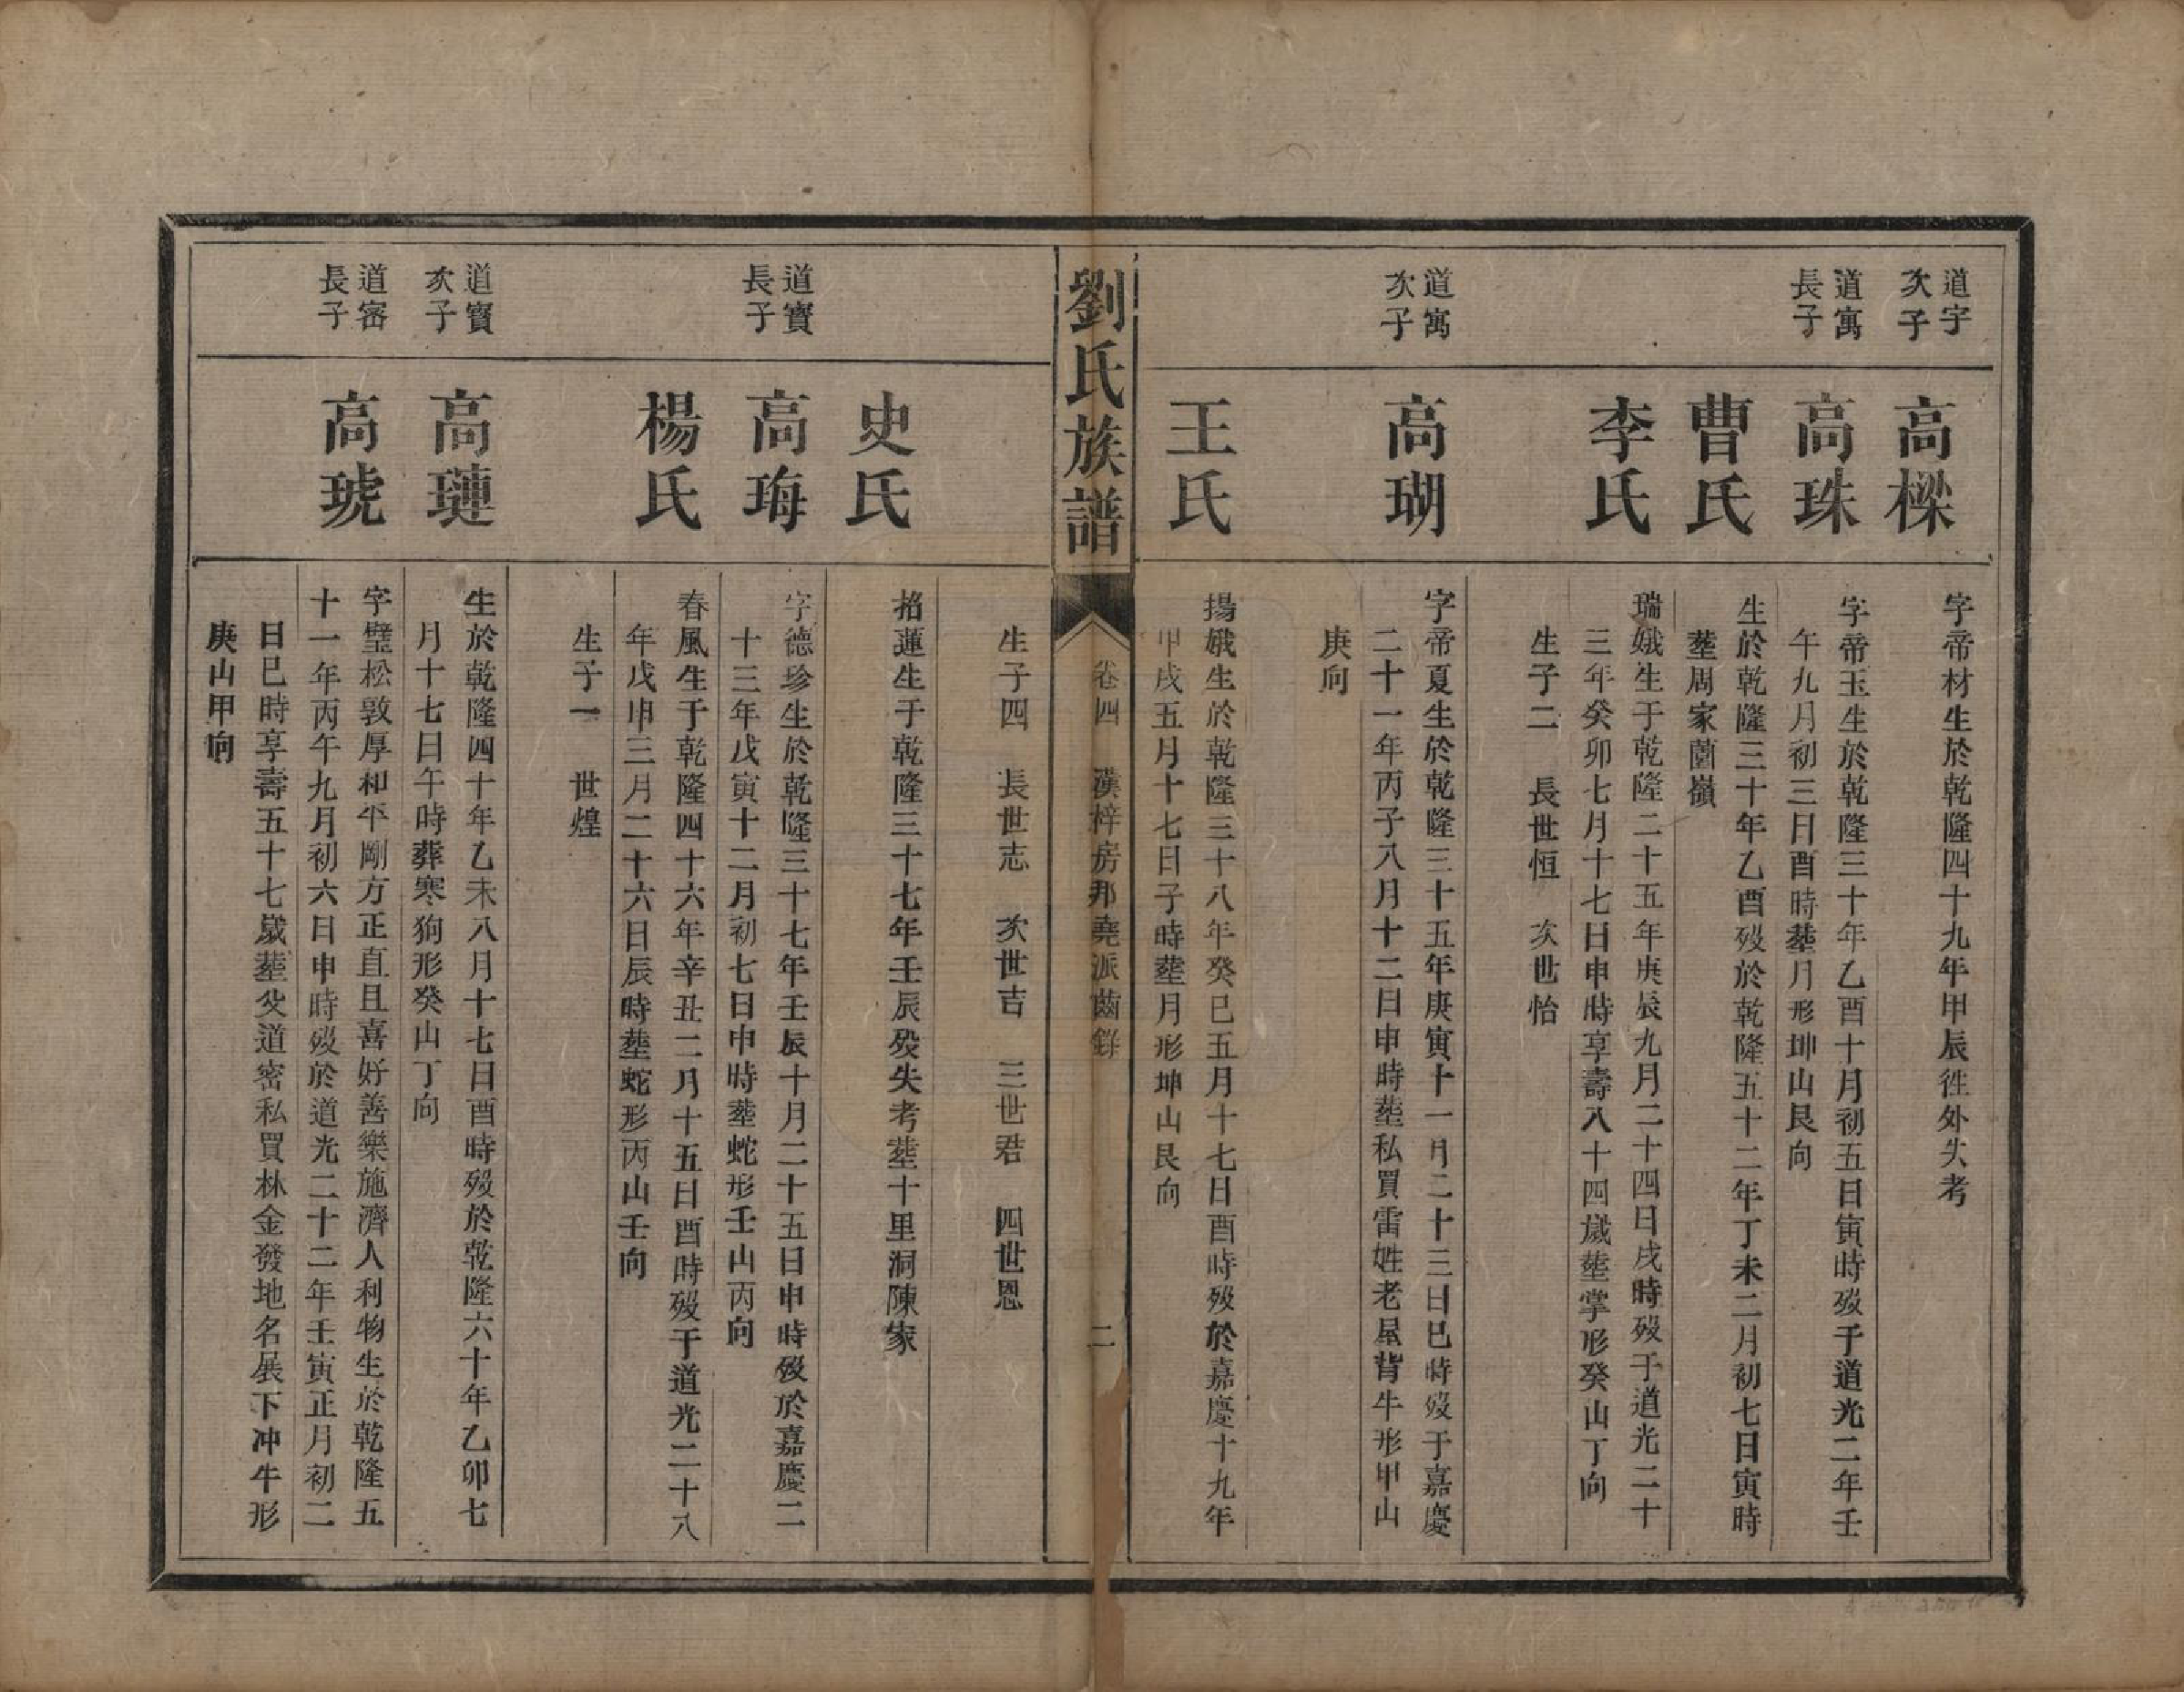 道宇
次子
高樑
字帝材生於乾隆四十九年甲辰徃外失考
道寓
長子
高珠
字帝玉生於乾隆三十年乙酉十月初五日寅時歿于道光二年壬
午九月初三日酉時塟月形坤山艮向
曹氏
生於乾隆三十年乙酉歿於乾隆五十二年丁未二月初七日寅時
塟周家薗嶺
李氏
瑞娥生于乾隆二十五年庚辰九月二十四日戌時歿于道光二十
三年癸卯七月十七日申時享壽八十四歲塟掌形癸山丁向
生子二　長世恒　次世怡
道寓
次子
高瑚
字帝夏生於乾隆三十五年庚寅十一月二十三日巳時歿于嘉慶
二十一年丙子八月十二日申時塟私買雷姓老屋背牛形甲山
庚向
王氏
揚娥生於乾隆三十八年癸巳五月十七日酉時歿於嘉慶十九年
甲戌五月十七日子時塟月形坤山艮向
劉氏族譜
卷四　漢梓房邦堯派齒錄
二
生子四　長世志　次世吉　三世君　四世恩
史氏
招蓮生于乾隆三十七年壬辰歿失考塟十里洞陳家
道寶
長子
高珻
字德珍生於乾隆三十七年壬辰十月二十五日申時歿於嘉慶二
十三年戊寅十二月初七日申時塟蛇形壬山丙向
楊氏
春風生于乾隆四十六年辛丑二月十五日酉時歿于道光二十八
年戊申三月二十六日辰時塟蛇形丙山壬向
生子一　世煌
道寶
次子
高璉
生於乾隆四十年乙未八月十七日酉時歿於乾隆六十年乙卯七
月十七日午時葬寒狗形癸山丁向
道密
長子
高琥
字璧松敦厚和平剛方正直且喜好善樂施濟人利物生於乾隆五
十一年丙午九月初六日申時歿於道光二十二年壬寅正月初二
日巳時享壽五十七歲塟父道密私買林金發地名展下冲牛形
庚山甲向